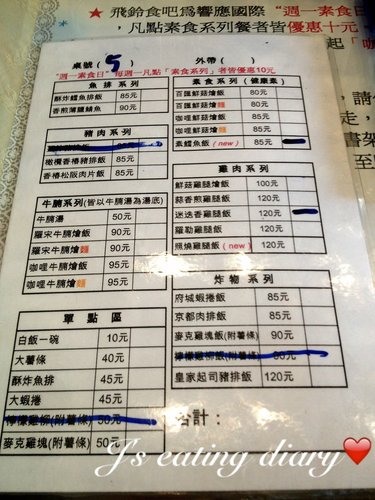 ★ 飛鈴食吧爲響應國際 "週一素
凡點素食系列餐者皆優惠十元
起
請
走,
書架
桌號( 5 ) 外帶( )
"週一素食日" 每週一凡點「素食系列」者皆優惠10元
魚排系列
酥炸鱈魚排飯 85元
香煎薄鹽鯖魚 90元
豬肉系列
橄欖香椿豬排飯 85元
香椿松阪肉片飯 85元
牛腩系列(皆以牛腩湯為湯底)
牛腩湯 50元
羅宋牛腩燴飯 90元
羅宋牛腩燴麵 90元
咖哩牛腩燴飯 95元
咖哩牛腩燴麵 95元
單點區
白飯一碗 10元
大薯條 40元
酥炸魚排 45元
大蝦捲 45元
檸檬雞柳(附薯條) 50元
麥克雞塊(附薯條) 50元
素食系列 (健康素)
百匯鮮菇燴飯 80元
百匯鮮菇燴麵 80元
咖哩鮮菇燴飯 85元
咖哩鮮菇燴麵 85元
素鱈魚飯(new) 85元
雞肉系列
鮮菇雞腿燴飯 100元
蒜香煎雞腿飯 120元
迷迭香雞腿飯 120元
羅勒雞腿飯 120元
照燒雞腿飯(new) 120元
炸物系列
府城蝦捲飯 85元
京都肉排飯 85元
麥克雞塊飯(附薯條) 90元
檸檬雞柳飯(附薯條) 80元
皇家起司豬排飯 120元
合計:
J's eating diary